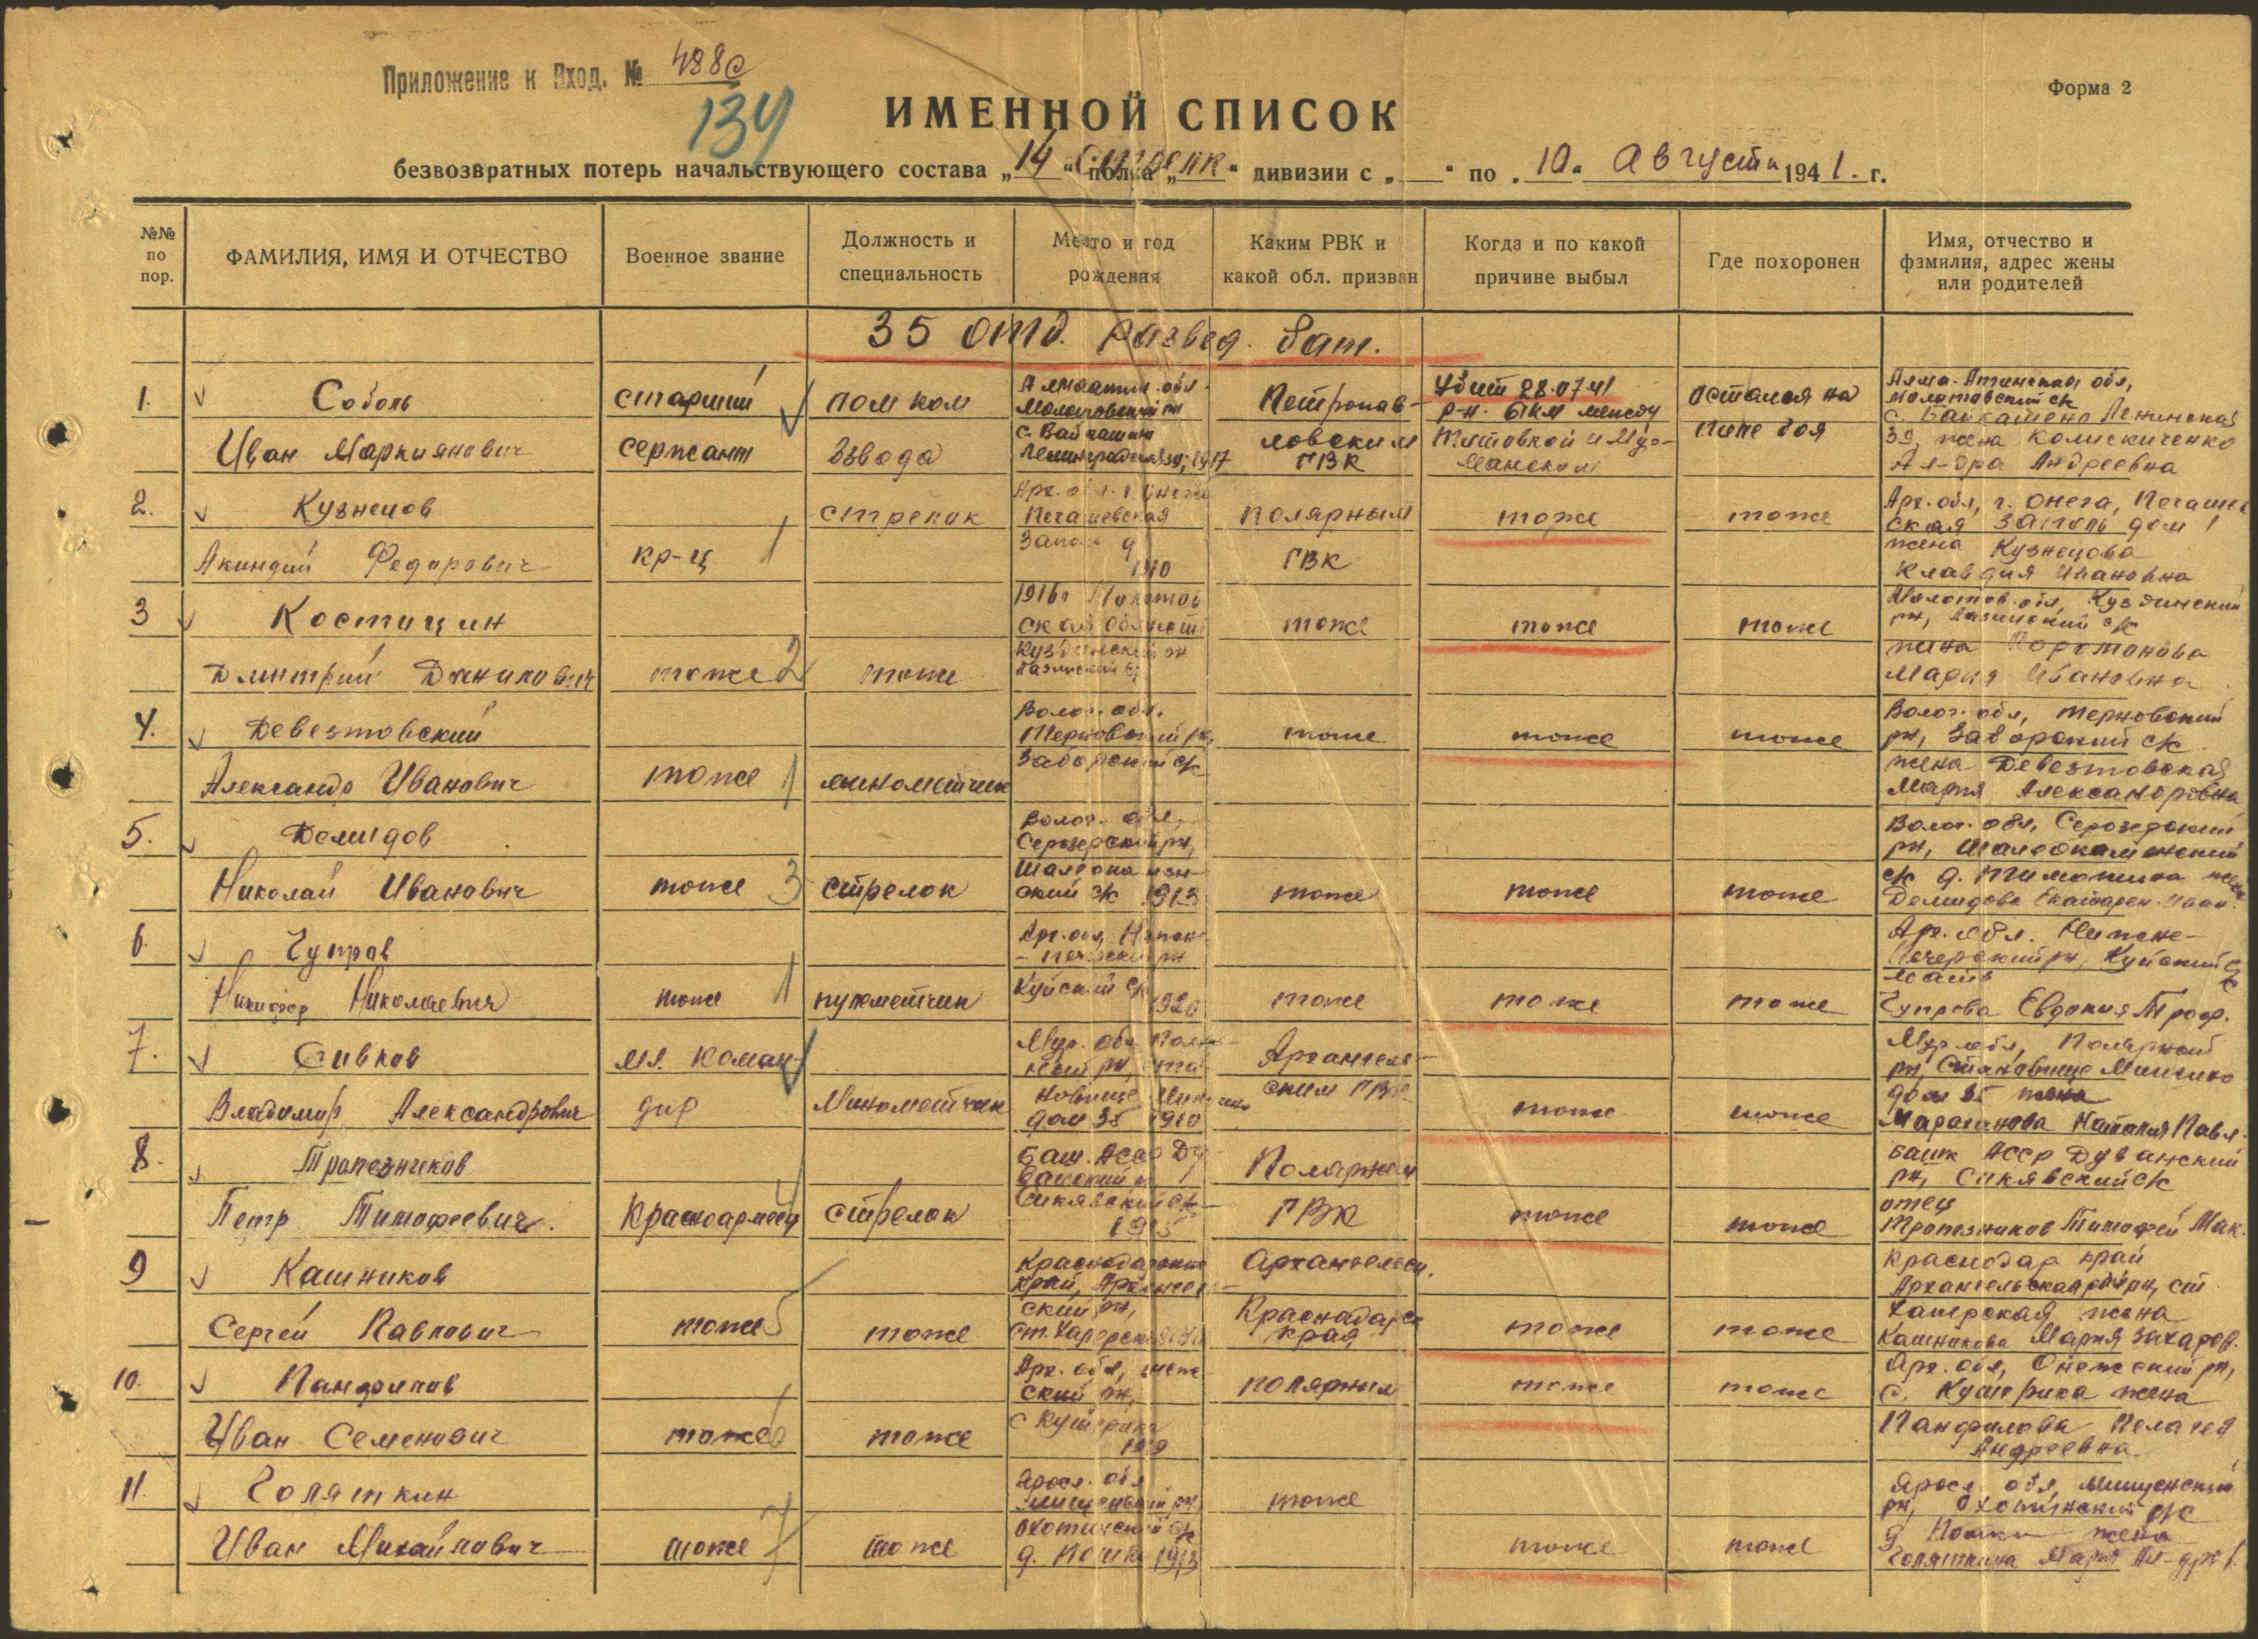 Приложение к Вход. № 488с
134
Форма 2
ИМЕННОЙ СПИСОК
безвозвратных потерь начальствующего состава „14“ Стрелк полка „ “ дивизии с „ “ по „10“ Августа 1941. г.
№№ по пор.
ФАМИЛИЯ, ИМЯ И ОТЧЕСТВО
Военное звание
Должность и специальность
Место и год рождения
Каким РВК и какой обл. призван
Когда и по какой причине выбыл
Где похоронен
Имя, отчество и фамилия, адрес жены или родителей
35 отд. развед. бат.
1. Соболь
Иван Маркиянович
старший
сержант
пом ком
взвода
с. Байкашино
Петропав-
ловским
ГВК
Убит 28.07.41
р-н. 6 км между
Титовкой и Мур-
манском
остался на
поле боя
Алма-Атинская обл,
Молотовский с/к
с. Байкашено Ленинская
39, жена Колискиченко
Ал-дра Андреевна
2. Кузнецов
Акиндий Федорович
кр-ц 1
стрелок
1910
Полярным
ГВК
тоже
тоже
Арх. обл, г. Онега,
дом 1
жена Кузнецова
Клавдия Ивановна
3 Костицин
Дмитрий Данилович
тоже 2
тоже
1916г Молотов
ской области
тоже
тоже
тоже
жена
Мария Ивановна
4. Девезтовский
Александр Иванович
тоже 1
минометчик
Волог. обл.
Заборский с/к
тоже
тоже
тоже
Волог. обл,
рн, Заборский с/к
жена Девезтовская
Мария Александровна
5. Демидов
Николай Иванович
тоже 3
стрелок
Волог. обл,
рн,
ский с/к 1913
тоже
тоже
тоже
Волог. обл,
с/к д. Тимошина жена
Демидова Екатерин. Иван.
6. Чупров
Никифор Николаевич
тоже 1
пулеметчик
Арх. обл, Нижне
-печерский рн
Куйский с/к
1920
тоже
тоже
тоже
Арх. обл. Нижне-
Печерский рн, Куйский с/к
мать
Чупрова Евдокия Троф.
7. Сивков
Владимир Александрович
мл. коман-
дир
Минометчик
Мур. обл.
дом 35 1910
Архангель-
ским ГВК
тоже
тоже
Мур обл, Полярный
рн, Становище Минькино
дом 35 жена
Мараканова Наталия Павл.
8. Трапезников
Петр Тимофеевич.
Красноармеец 4
стрелок
Баш. АССР Ду
ванский рн
Сикявский с/к
Полярным
ГВК
тоже
тоже
Баш АССР Дуванский
рн, Сикявский с/к
отец
Трапезников Тимофей Мак.
9 Кашников
Сергей Павлович
тоже 5
тоже
Краснодарский
край,
ский рн,
Архангельск.
Краснодарск
края
тоже
тоже
Краснодар край
жена
Кашникова Мария Захаров.
10. Панфилов
Иван Семенович
тоже 6
тоже
Арх. обл,
ский рн,
с Кушерика
1909
Полярным
тоже
тоже
Арх. обл, Онежский рн,
с. Кушерика жена
Панфилова Пелагея
Андреевна
11. Голяткин
Иван Михайлович
тоже 7
тоже
Яросл. обл
Охотинский с/к
д. Ношки 1913
тоже
тоже
тоже
Яросл обл, Мышкинский
рн, Охотинский с/с
д Ношки жена
Голяткина Мария Ал-др